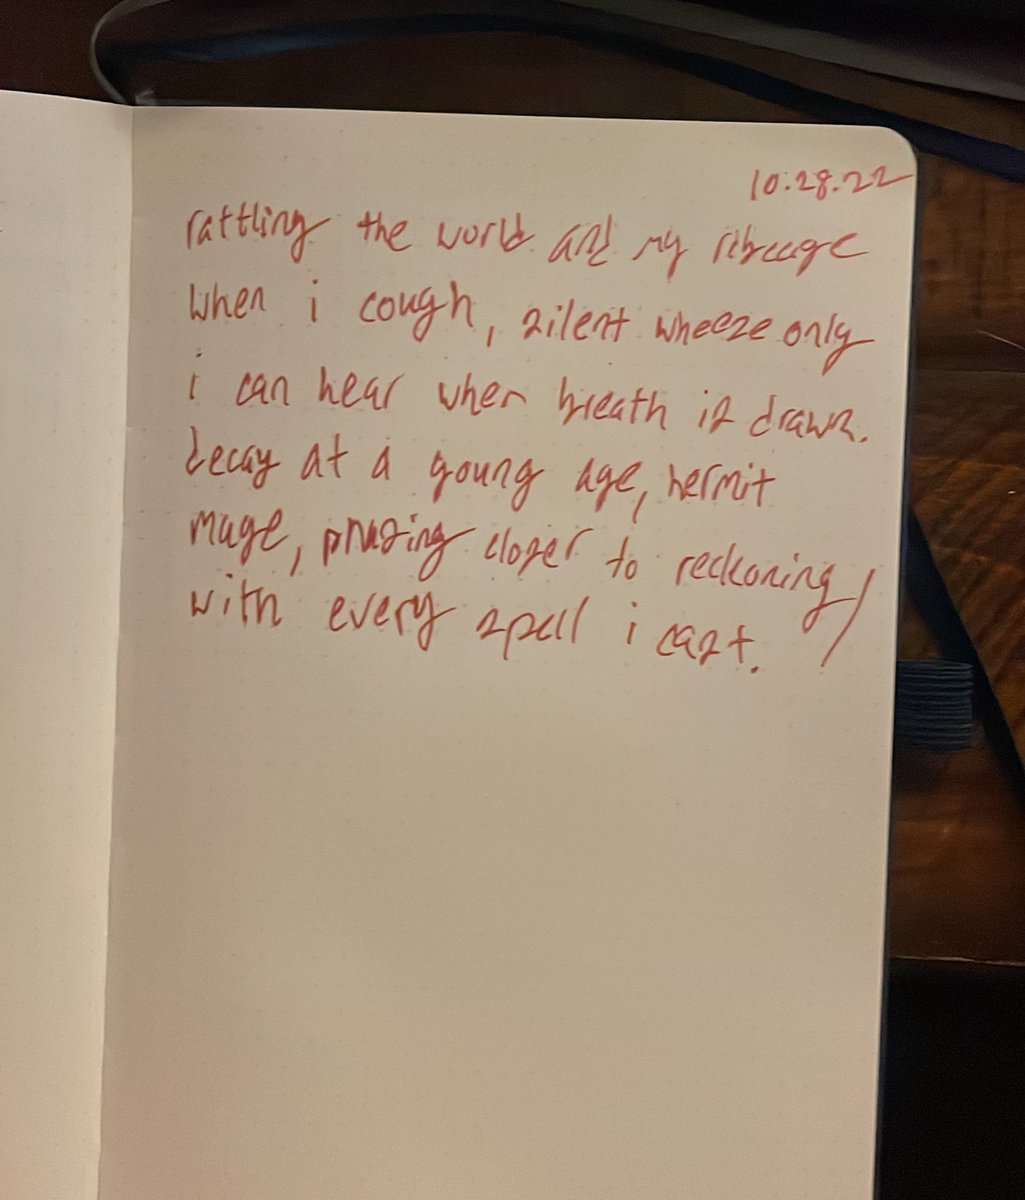 10.28.22
rattling the world and my ribcage
when i cough, silent wheeze only
i can hear when breath is drawn.
decay at a young age, hermit
mage, phasing closer to reckoning/
with every spell i cast.